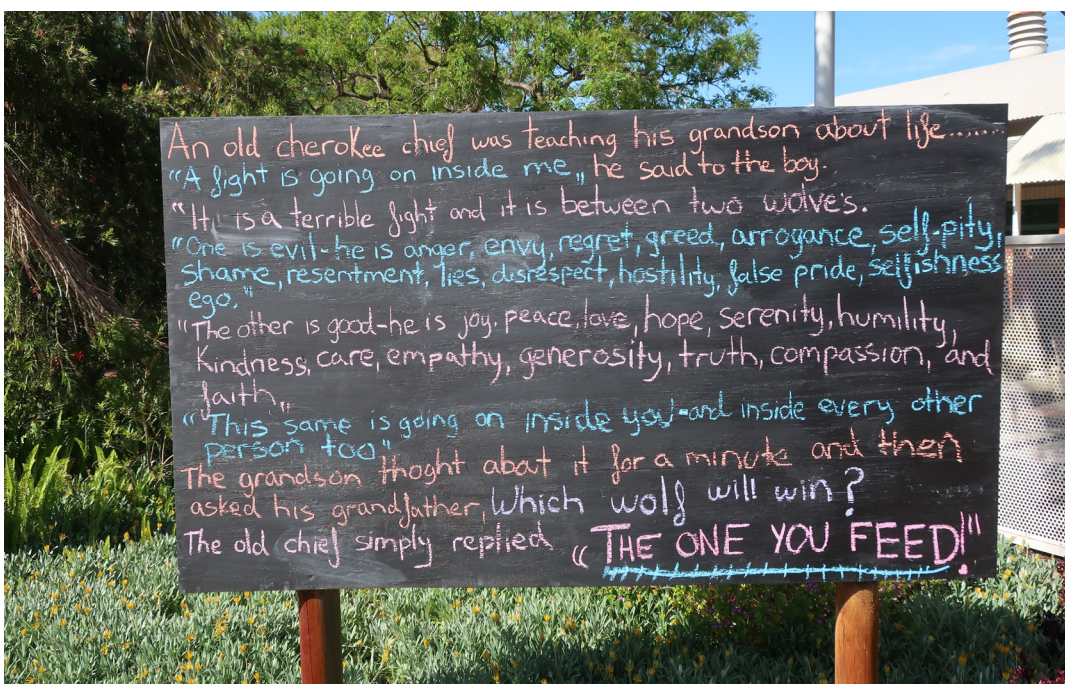 An old cherokee chief was teaching his grandson about life.......
"A fight is going on inside me,, he said to the boy.
"It is a terrible fight and it is between two wolve's.
"One is evil-he is anger, envy, regret, greed, arrogance, self-pity,
shame, resentment, lies, disrespect, hostility, false pride, selfishness
ego."
"The other is good-he is joy. peace, love, hope, serenity, humility,
Kindness, care, empathy, generosity, truth, compassion, and
faith,,
"This same is going on inside you-and inside every other
person too"
The grandson thoght about it for a minute and then
asked his grandfather, Which wolf will win?
The old chief simply replied "THE ONE YOU FEED!"